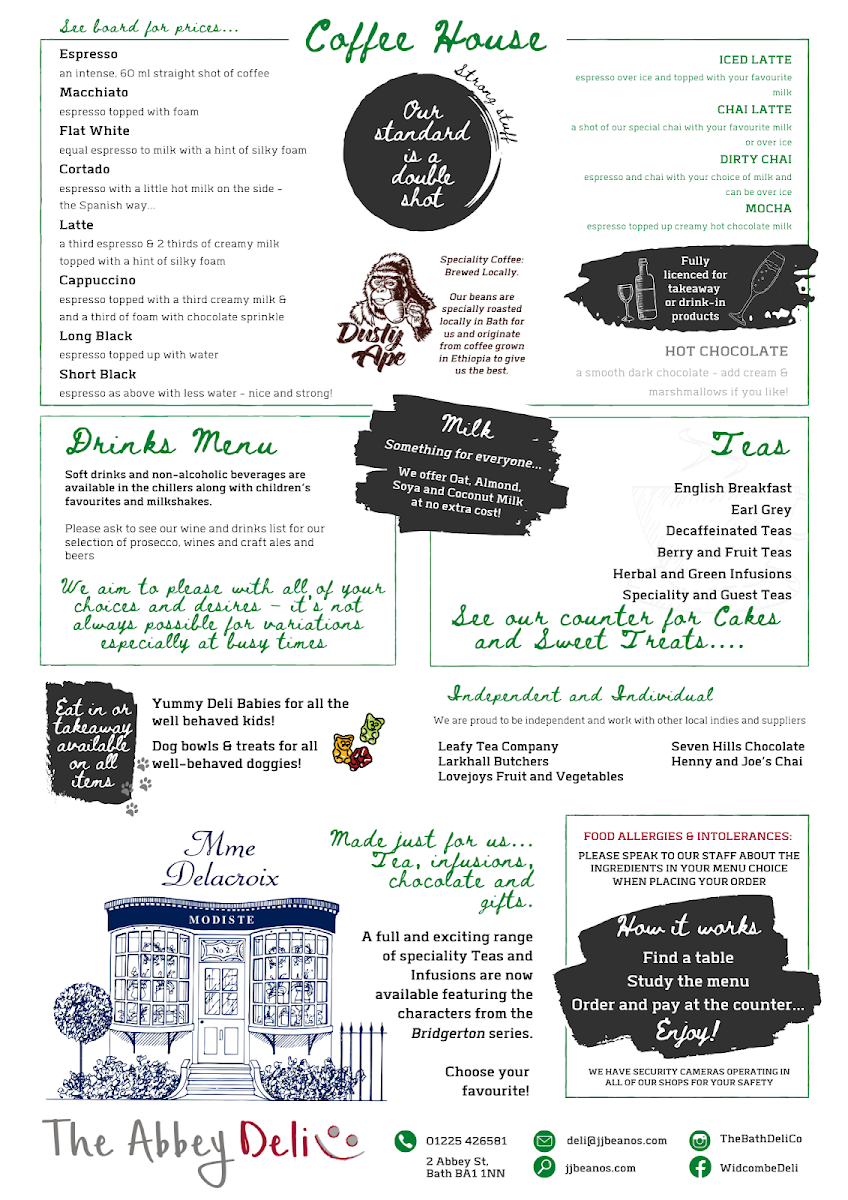 See board for prices...
Coffee House
Espresso
an intense, 60 ml straight shot of coffee
Macchiato
espresso topped with foam
Flat White
equal espresso to milk with a hint of silky foam
Cortado
espresso with a little hot milk on the side –
the Spanish way...
Latte
a third espresso & 2 thirds of creamy milk
topped with a hint of silky foam
Cappuccino
espresso topped with a third creamy milk &
and a third of foam with chocolate sprinkle
Long Black
espresso topped up with water
Short Black
espresso as above with less water – nice and strong!
Strong stuff
Our
standard
is a
double
shot
Dusty
Ape
Speciality Coffee:
Brewed Locally.
Our beans are
specially roasted
locally in Bath for
us and originate
from coffee grown
in Ethiopia to give
us the best.
ICED LATTE
espresso over ice and topped with your favourite
milk
CHAI LATTE
a shot of our special chai with your favourite milk
or over ice
DIRTY CHAI
espresso and chai with your choice of milk and
can be over ice
MOCHA
espresso topped up creamy hot chocolate milk
Fully
licenced for
takeaway
or drink-in
products
HOT CHOCOLATE
a smooth dark chocolate – add cream &
marshmallows if you like!
Drinks Menu
Soft drinks and non-alcoholic beverages are
available in the chillers along with children's
favourites and milkshakes.
Please ask to see our wine and drinks list for our
selection of prosecco, wines and craft ales and
beers
We aim to please with all of your
choices and desires – it's not
always possible for variations
especially at busy times
Milk
Something for everyone...
We offer Oat, Almond,
Soya and Coconut Milk
at no extra cost!
Teas
English Breakfast
Earl Grey
Decaffeinated Teas
Berry and Fruit Teas
Herbal and Green Infusions
Speciality and Guest Teas
See our counter for Cakes
and Sweet Treats....
Eat in or
takeaway
available
on all
items
Yummy Deli Babies for all the
well behaved kids!
Dog bowls & treats for all
well-behaved doggies!
Independent and Individual
We are proud to be independent and work with other local indies and suppliers
Leafy Tea Company
Larkhall Butchers
Lovejoys Fruit and Vegetables
Seven Hills Chocolate
Henny and Joe's Chai
Mme
Delacroix
MODISTE
No 2
Made just for us...
Tea, infusions,
chocolate and
gifts.
A full and exciting range
of speciality Teas and
Infusions are now
available featuring the
characters from the
Bridgerton series.
Choose your
favourite!
FOOD ALLERGIES & INTOLERANCES:
PLEASE SPEAK TO OUR STAFF ABOUT THE
INGREDIENTS IN YOUR MENU CHOICE
WHEN PLACING YOUR ORDER
How it works
Find a table
Study the menu
Order and pay at the counter...
Enjoy!
WE HAVE SECURITY CAMERAS OPERATING IN
ALL OF OUR SHOPS FOR YOUR SAFETY
The Abbey Deli
01225 426581
2 Abbey St,
Bath BA1 1NN
deli@jjbeanos.com
jjbeanos.com
TheBathDeliCo
WidcombeDeli